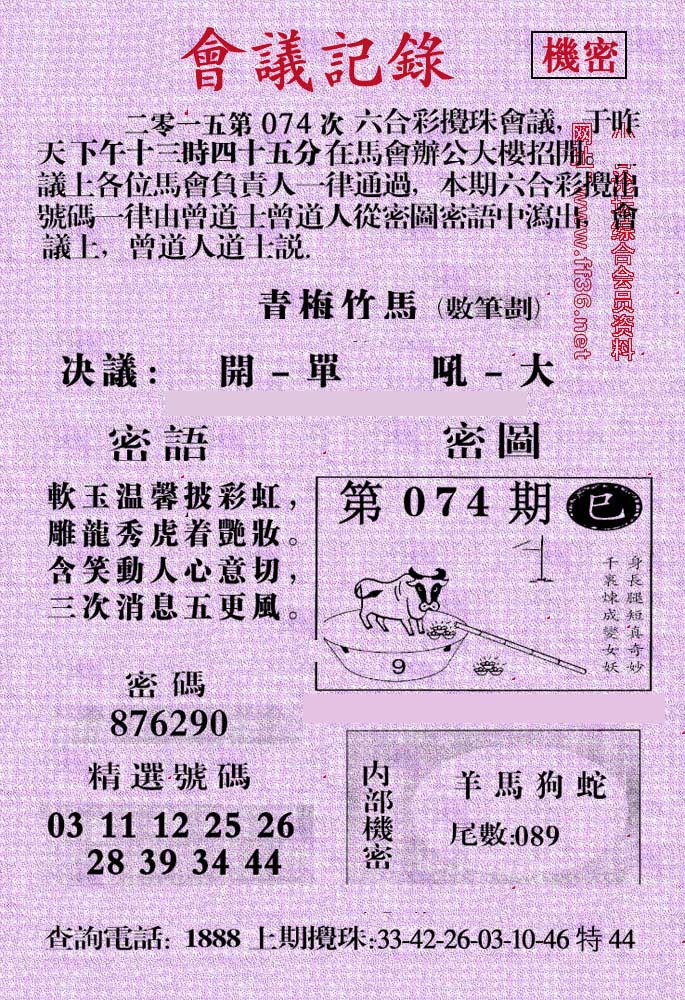 會議記錄
機密
二零一五第 074 次 六合彩攪珠會議，于昨
天下午十三時四十五分在馬會辦公大樓招開。
議上各位馬會負責人一律通過，本期六合彩攪出
號碼一律由曾道士曾道人從密圖密語中瀉出，會
議上，曾道人道士説.
青梅竹馬（數筆劃）
决議： 開－單 吼－大
密語
軟玉温馨披彩虹，
雕龍秀虎着艷妝。
含笑動人心意切，
三次消息五更風。
密圖
第 074 期 巳
身長腿短真奇妙
千裏煉成變女妖
9
密碼
876290
精選號碼
03 11 12 25 26
28 39 34 44
内部機密
羊馬狗蛇
尾數:089
查詢電話: 1888 上期攪珠:33-42-26-03-10-46 特 44
综合会员资料
网址：www.ff36.net